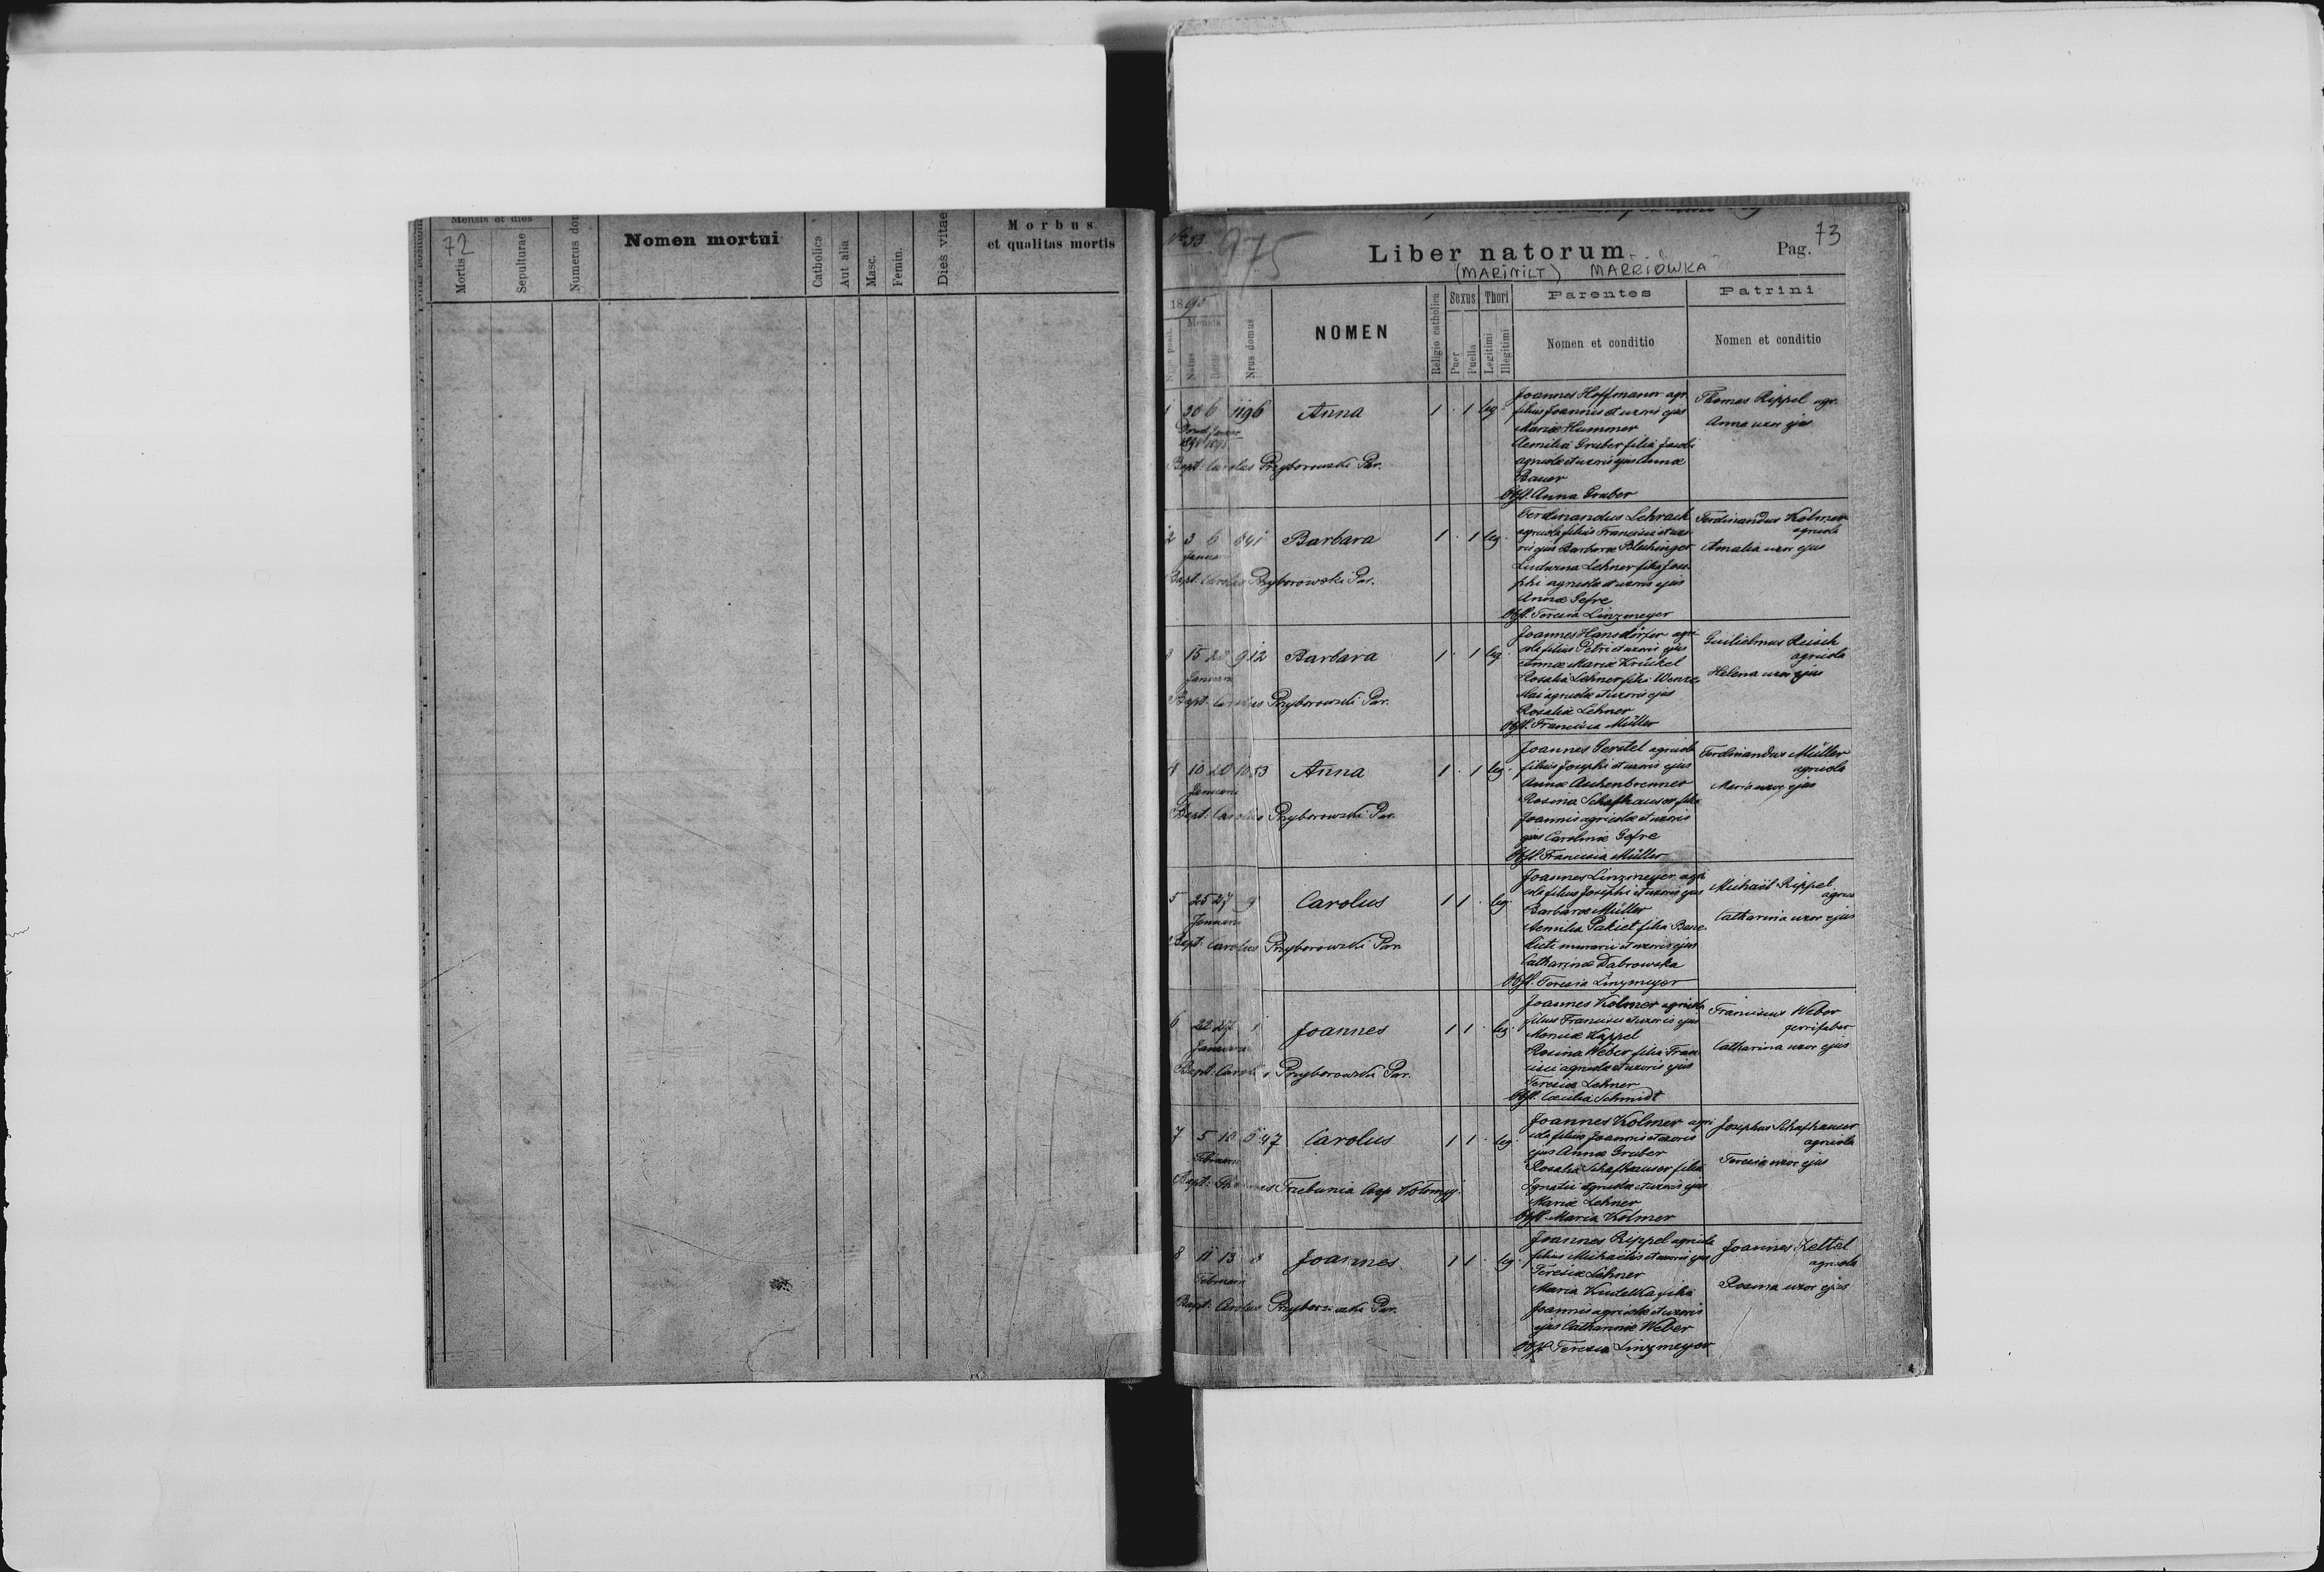 72
Mensis et dies
Mortis
Sepulturae
Numerus dom
Nomen mortui
Catholica
Aut alia
Masc.
Femin.
Dies vitae
Morbus
et qualitas mortis
975
Liber natorum.
Pag. 73
(MARINILT) MARRIOWKA
1895
Mensis
Natus
Nrus domus
NOMEN
Religio catholica
Sexus
Puer
Puella
Thori
Legitimi
Illegitimi
Parentes
Nomen et conditio
Patrini
Nomen et conditio
1 30 6 1196 Anna 1 . 1 leg.
Bapt: Carolus Przyborowski Par.
Joannes Hoffmann agr.
filius Joannis et uxoris ejus
Mariæ Hummer
Aemilia Gruber filia Jacobi
agricolæ et uxoris ejus Annæ
Bauer
Obst. Anna Gruber
Thomas Rippel agr.
Anna uxor ejus
2 3 6 Barbara 1 . 1 leg.
Januarii
Bapt: Carolus Przyborowski Par.
Ferdinandus Lehrach
agricola filius Francisci et uxo-
ris ejus Barbaræ Bleshinger
Ludwina Lehner filia Jose-
phi agricolæ et uxoris ejus
Annæ Gefre
Obst. Teresia Linzmeyer
Ferdinandus Kolmer
agricola
Amalia uxor ejus
3 15 20 912 Barbara 1 . 1 leg.
Januarii
Bapt: Carolus Przyborowski Par.
Joannes Hansdörfer agri-
cola filius Petri et uxoris ejus
Annæ Mariæ Krückel
Rosalia Lehner filia Wences-
lai agricolæ et uxoris ejus
Rosaliæ Lehner
Obst. Francisca Müller
Guilielmus Reisch
agricola
Helena uxor ejus
4 10 20 1053 Anna 1 . 1 leg.
Januarii
Bapt: Carolus Przyborowski Par.
Joannes Gerstel agricola
filius Josephi et uxoris ejus
Annæ Aschenbrenner
Rosina Schafhauser filia
Joannis agricolæ et uxoris
ejus Carolinæ Gefre
Obst. Francisca Müller
Ferdinandus Müller
agricola
Maria uxor ejus
5 25 27 9 Carolus 1 1 . leg.
Januarii
Bapt: Carolus Przyborowski Par.
Joannes Linzmeyer agri-
cola filius Josephi et uxoris ejus
Barbaræ Müller
Aemilia Pakiet filia Bene-
dicti murarii et uxoris ejus
Catharinæ Dabrowska
Obst. Teresia Linzmeyer
Michaël Rippel
agricola
Catharina uxor ejus
6 22 27 1 Joannes 1 1 . leg.
Januarii
Bapt: Carolus Przyborowski Par.
Joannes Kolmer agricola
filius Francisci et uxoris ejus
Monicæ Kappel
Rosina Weber filia Fran-
cisci agricolæ et uxoris ejus
Teresiæ Lehner
Obst. Cæcilia Schmidt
Franciscus Weber
ferrifaber
Catharina uxor ejus
7 5 10 Carolus 1 1 . leg.
Februarii
Bapt: Thomas Trzebunia Coop Kołomyj.
Joannes Kolmer agri-
cola filius Joannis et uxoris
ejus Annæ Gruber
Rosalia Schafhauser filia
Ignatii agricolæ et uxoris ejus
Mariæ Lehner
Obst. Maria Kolmer
Josephus Schafhauser
agricola
Teresia uxor ejus
8 11 13 8 Joannes 1 1 . leg.
Februarii
Bapt: Carolus Przyborowski Par.
Joannes Rippel agricola
filius Michaëlis et uxoris ejus
Teresiæ Lehner
Maria Kudelka filia
Joannis agricolæ et uxoris
ejus Catharinæ Weber
Obst Teresia Linzmeyer
Joannes Zettel
agricola
Rosina uxor ejus